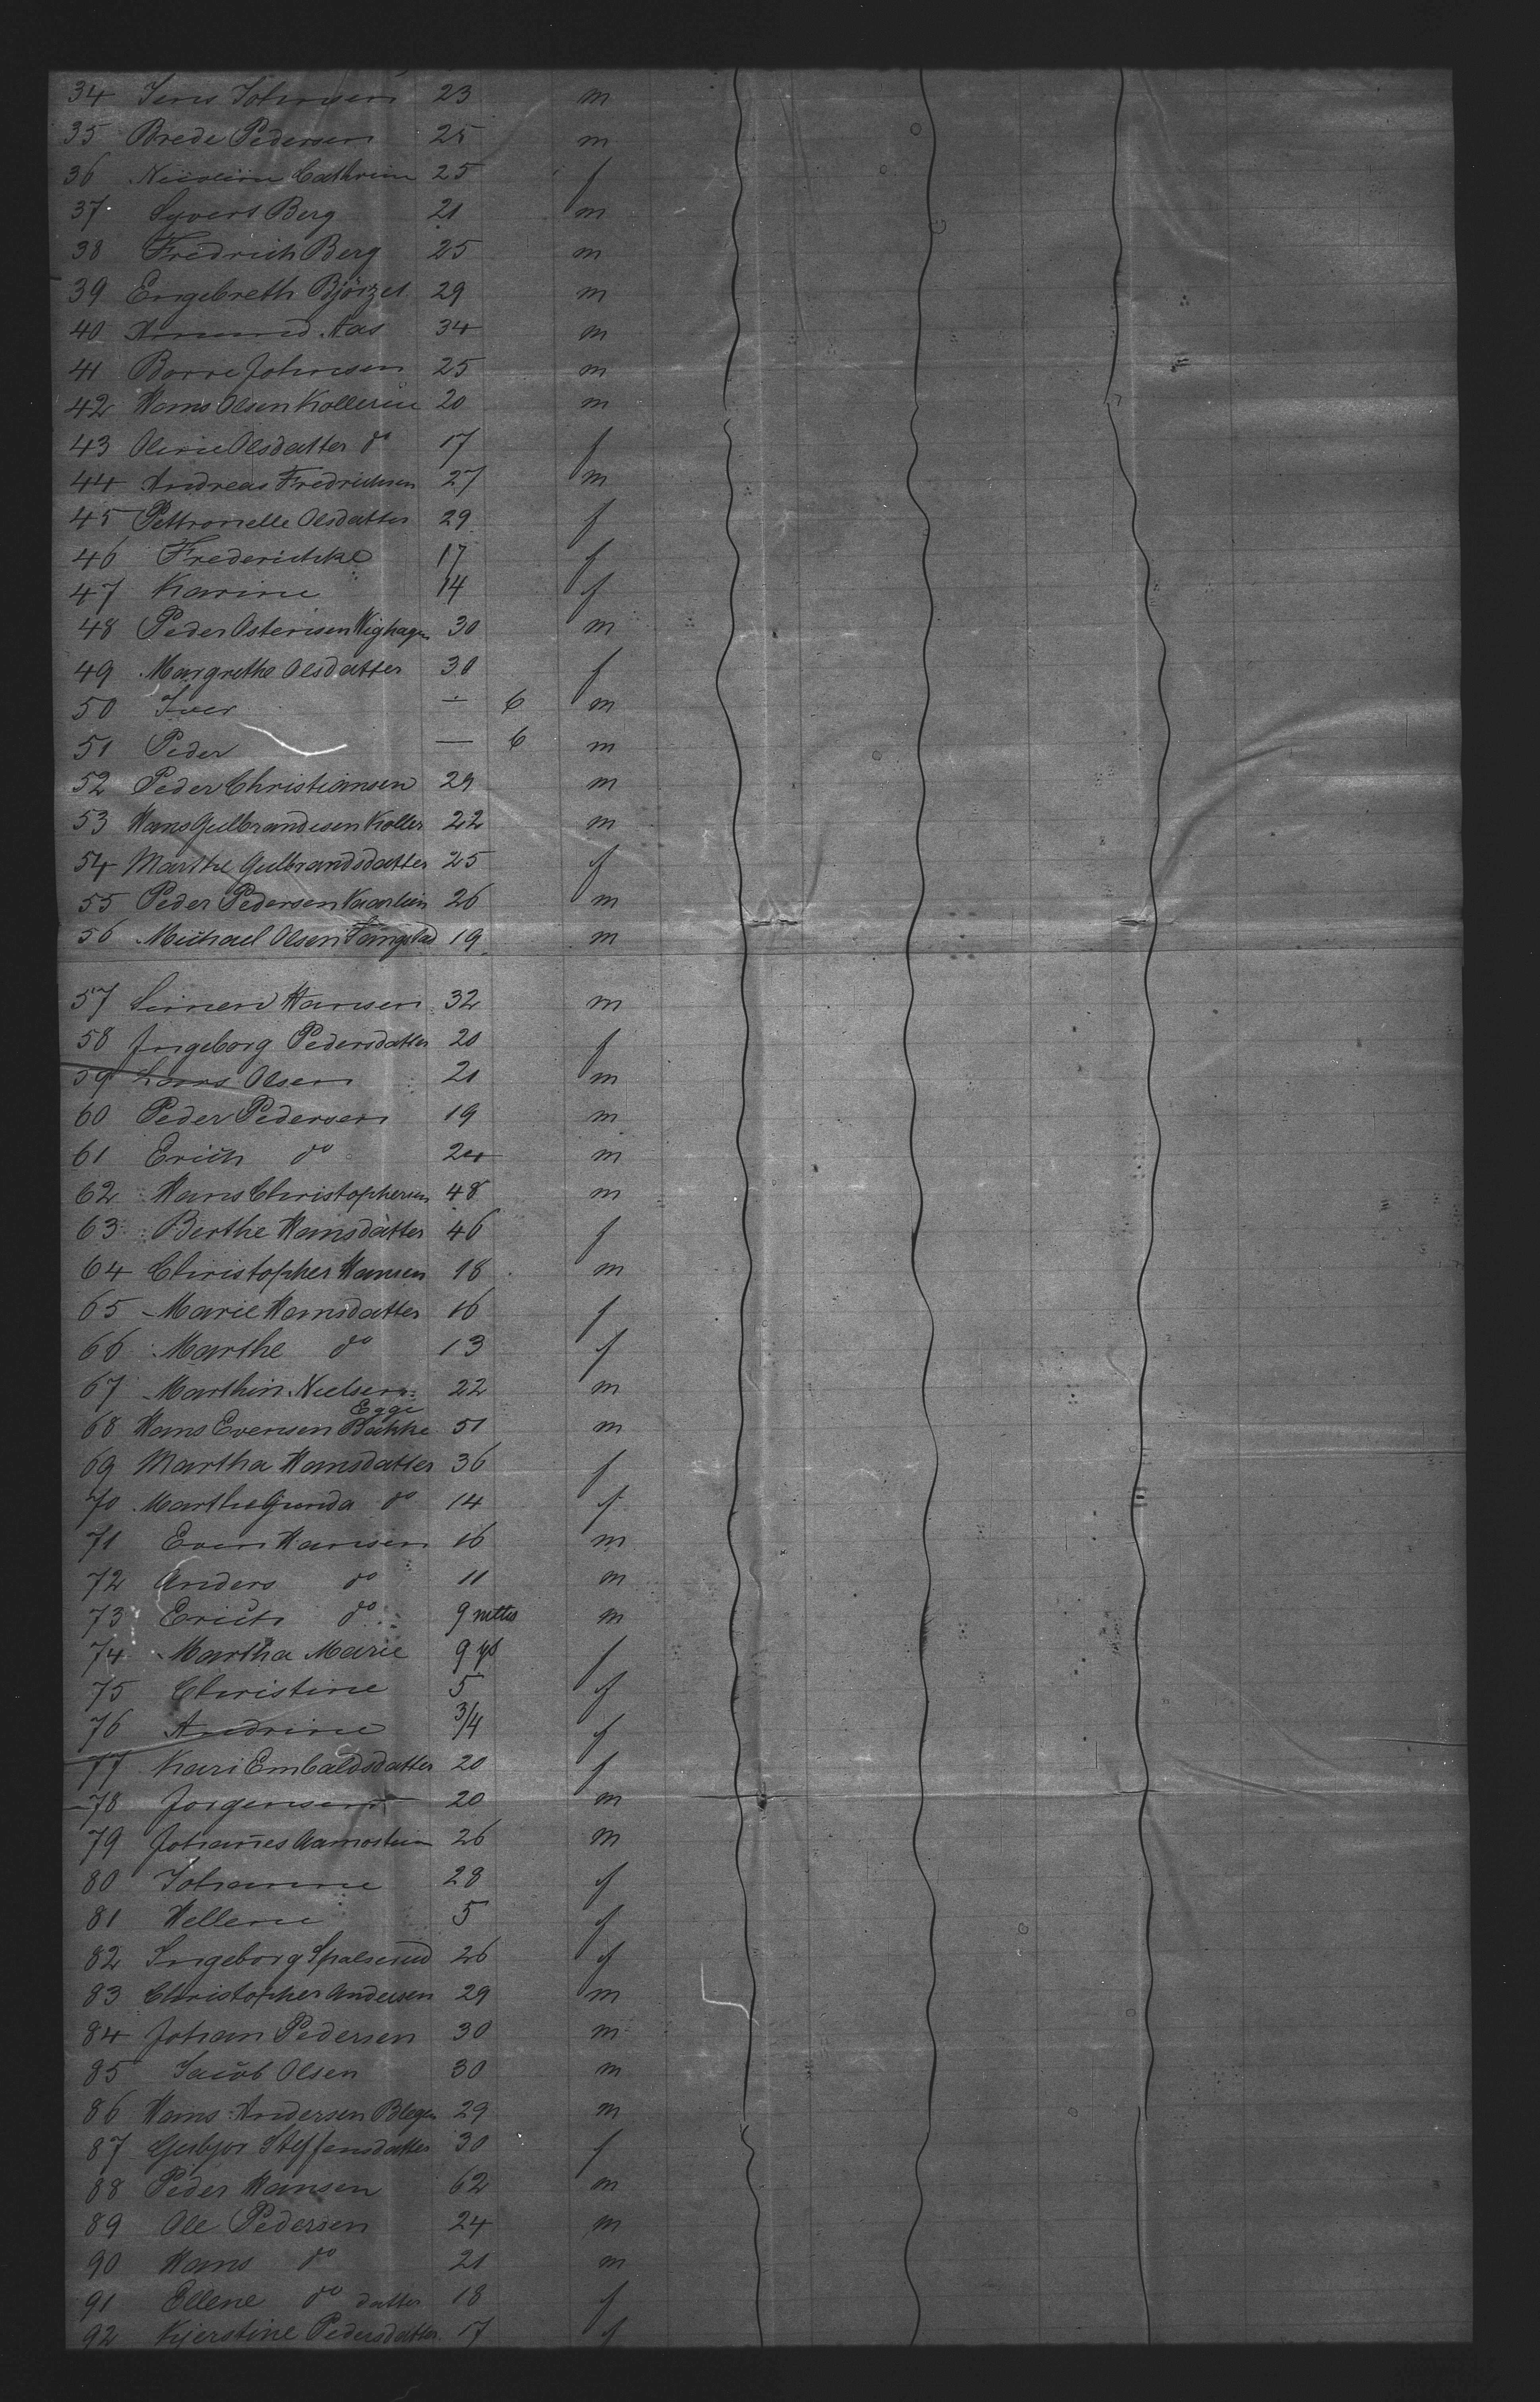 34 Jens Johnsen 23 m
35 Brede Pedersen 25 m
36 Nicoline Cathrine 25 f
37 Syvert Berg 21 m
38 Fredrich Berg 25 m
39 Engebreth 29 m
40 Amund Aas 34 m
41 Borre Johnsen 25 m
42 Hans Olsen Kollerin 20 m
43 Oline Olsdatter do 17 f
44 Andreas Fredrichsen 27 m
45 Pettronelle Olsdatter 29 f
46 17 f
47 Karine 14 f
48 Peder 30 m
49 Margrethe Olsdatter 30 f
50 Iver — 6 m
51 Peder — 6 m
52 Peder Christiansen 29 m
53 Hans Gulbrandsen Koller 22 m
54 Marthe Gulbrandsdatter 25 f
55 Peder Pedersen 26 m
56 Michael Olsen 19 m
57 Simen Hansen 32 m
58 Ingeborg Pedersdatter 20 f
59 Lars Olsen 21 m
60 Peder Pedersen 19 m
61 Erich do m
62 Hans Christophersen 48 m
63 Berthe Hansdatter 46 f
64 Christopher Hansen 18 m
65 Marie Hansdatter 16 f
66 Marthe do 13 f
67 Marthin Nielsen 22 m
Egge
68 Hans Evensen Bakke 51 m
69 Martha Hansdatter 36 f
70 Marthe Gunda do 14 f
71 Even Hansen 16 m
72 Anders do 11 m
73 Erich do 9 mths m
74 Martha Marie 9 ys f
75 Christine 5 f
76 Andrine 3/4 f
77 Kari Embaldsdatter 20 f
78 Jorgensen 20 m
79 Johannes 26 m
80 Johanne 28 f
81 Hellene 5 f
82 Ingeborg 26 f
83 Christopher Andersen 29 m
84 Johan Pedersen 30 m
85 Jacob Olsen 30 m
86 Hans Andersen Blegen 29 m
87 Steffensdatter 30 f
88 Peder Hansen 62 m
89 Ole Pedersen 24 m
90 Hans do 21 m
91 Ellene do datter 18 f
92 Kjerstine Pedersdatter 17 f